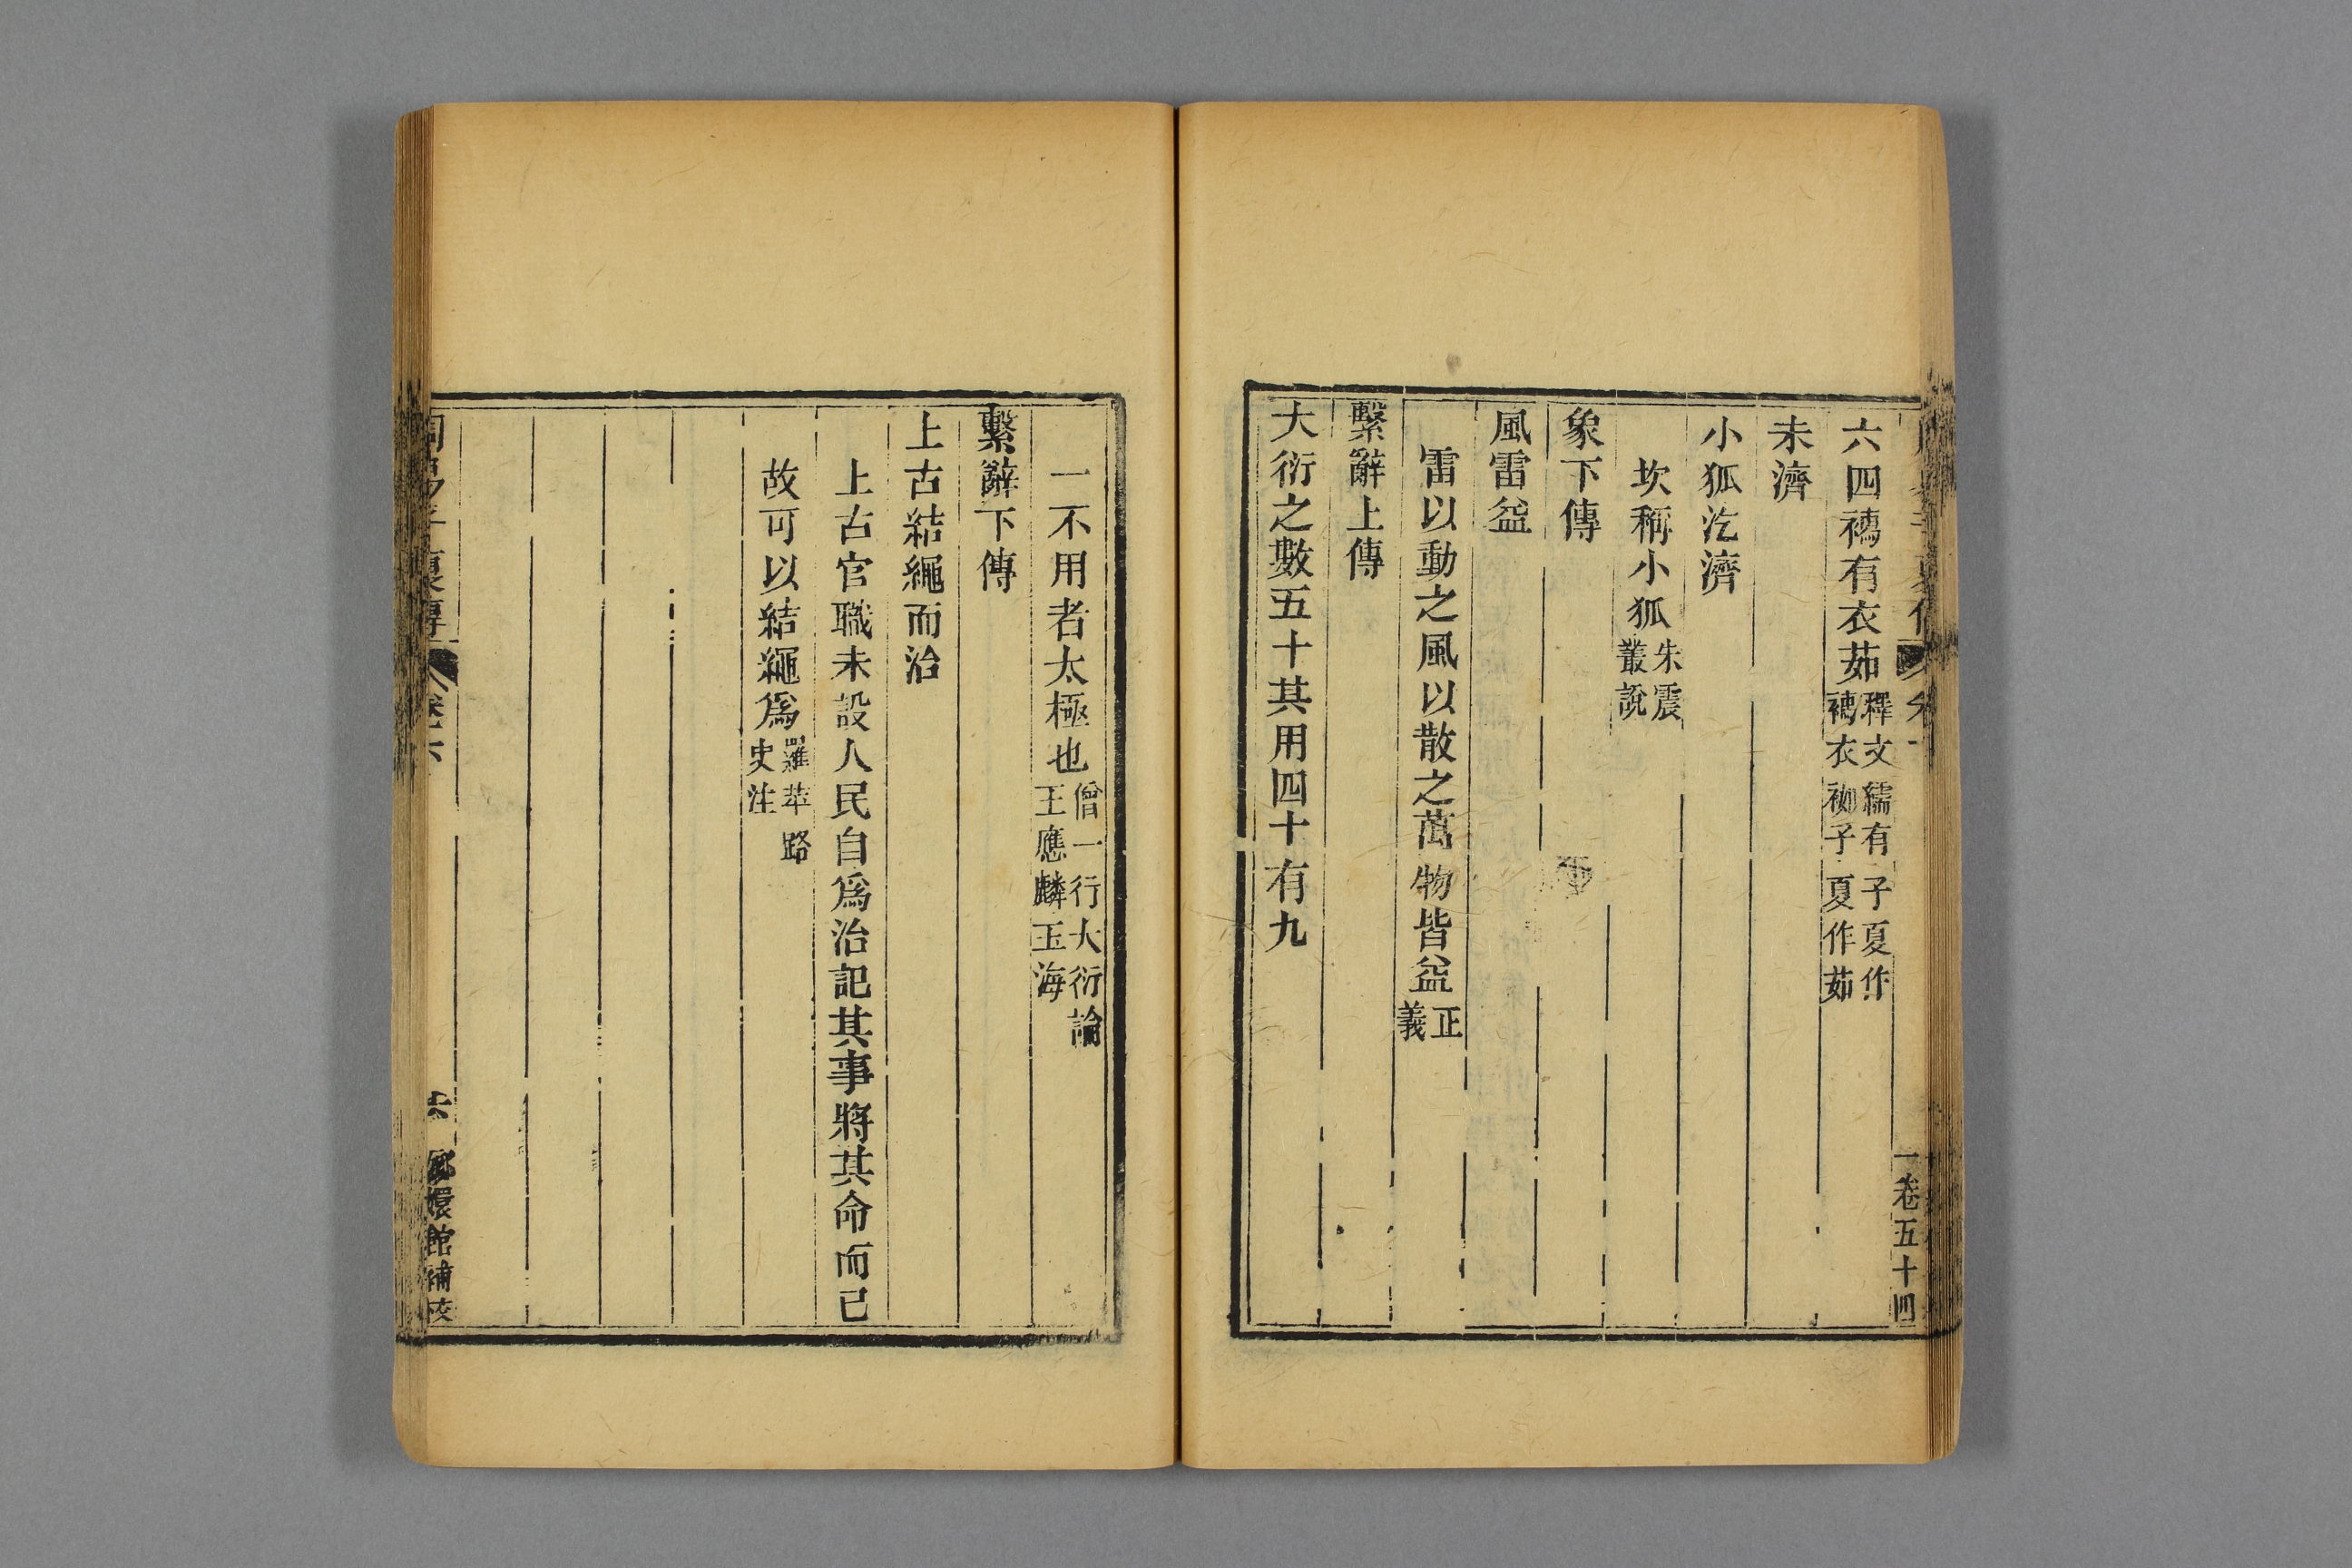 一卷五十四
六四襦有衣茹釋文繻有子夏作襦衣袽子夏作茹
未濟
小狐汔濟
坎稱小狐朱震叢說
象下傳
風雷益
雷以動之風以散之萬物皆益正義
繫辭上傳
大衍之數五十其用四十有九
一不用者太極也僧一行大衍論王應麟玉海
繫辭下傳
上古結繩而治
上古官職未設人民自爲治記其事將其命而已
故可以結繩爲羅苹路史注
嬛館補校